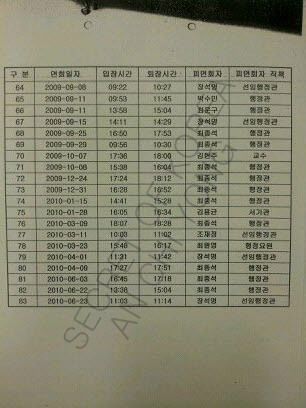 구 분 면회일자 입장시간 퇴장시간 피면회자 피면회자 직책
64 2009-09-08 09:22 10:27 장석명 선임행정관
65 2009-09-11 09:53 11:45 박수민 행정관
66 2009-09-11 13:58 15:04 행정관
67 2009-09-15 14:11 14:29 장석명 선임행정관
68 2009-09-25 16:50 17:53 최종석 행정관
69 2009-09-29 09:56 10:30 최종석 행정관
70 2009-10-07 17:36 18:06 김현수 교수
71 2009-11-06 15:38 16:04 최종석 행정관
72 2009-12-24 17:24 18:12 최종석 행정관
73 2009-12-31 16:28 16:52 최종석 행정관
74 2010-01-15 14:41 15:28 최종석 행정관
75 2010-01-28 16:05 16:34 김용균 서기관
76 2010-03-09 18:07 18:28 최종석 행정관
77 2010-03-11 10:03 11:02 조재정 선임행정관
78 2010-03-23 15:48 16:17 행정요원
79 2010-04-01 11:31 11:42 장석명 선임행정관
80 2010-04-09 17:27 17:51 최종석 행정관
81 2010-06-03 16:45 17:18 최종석 행정관
82 2010-06-22 13:36 15:04 최종석 행정관
83 2010-06-23 11:03 11:14 장석명 선임행정관
SECRET OF KOREA
AN CHI YONG